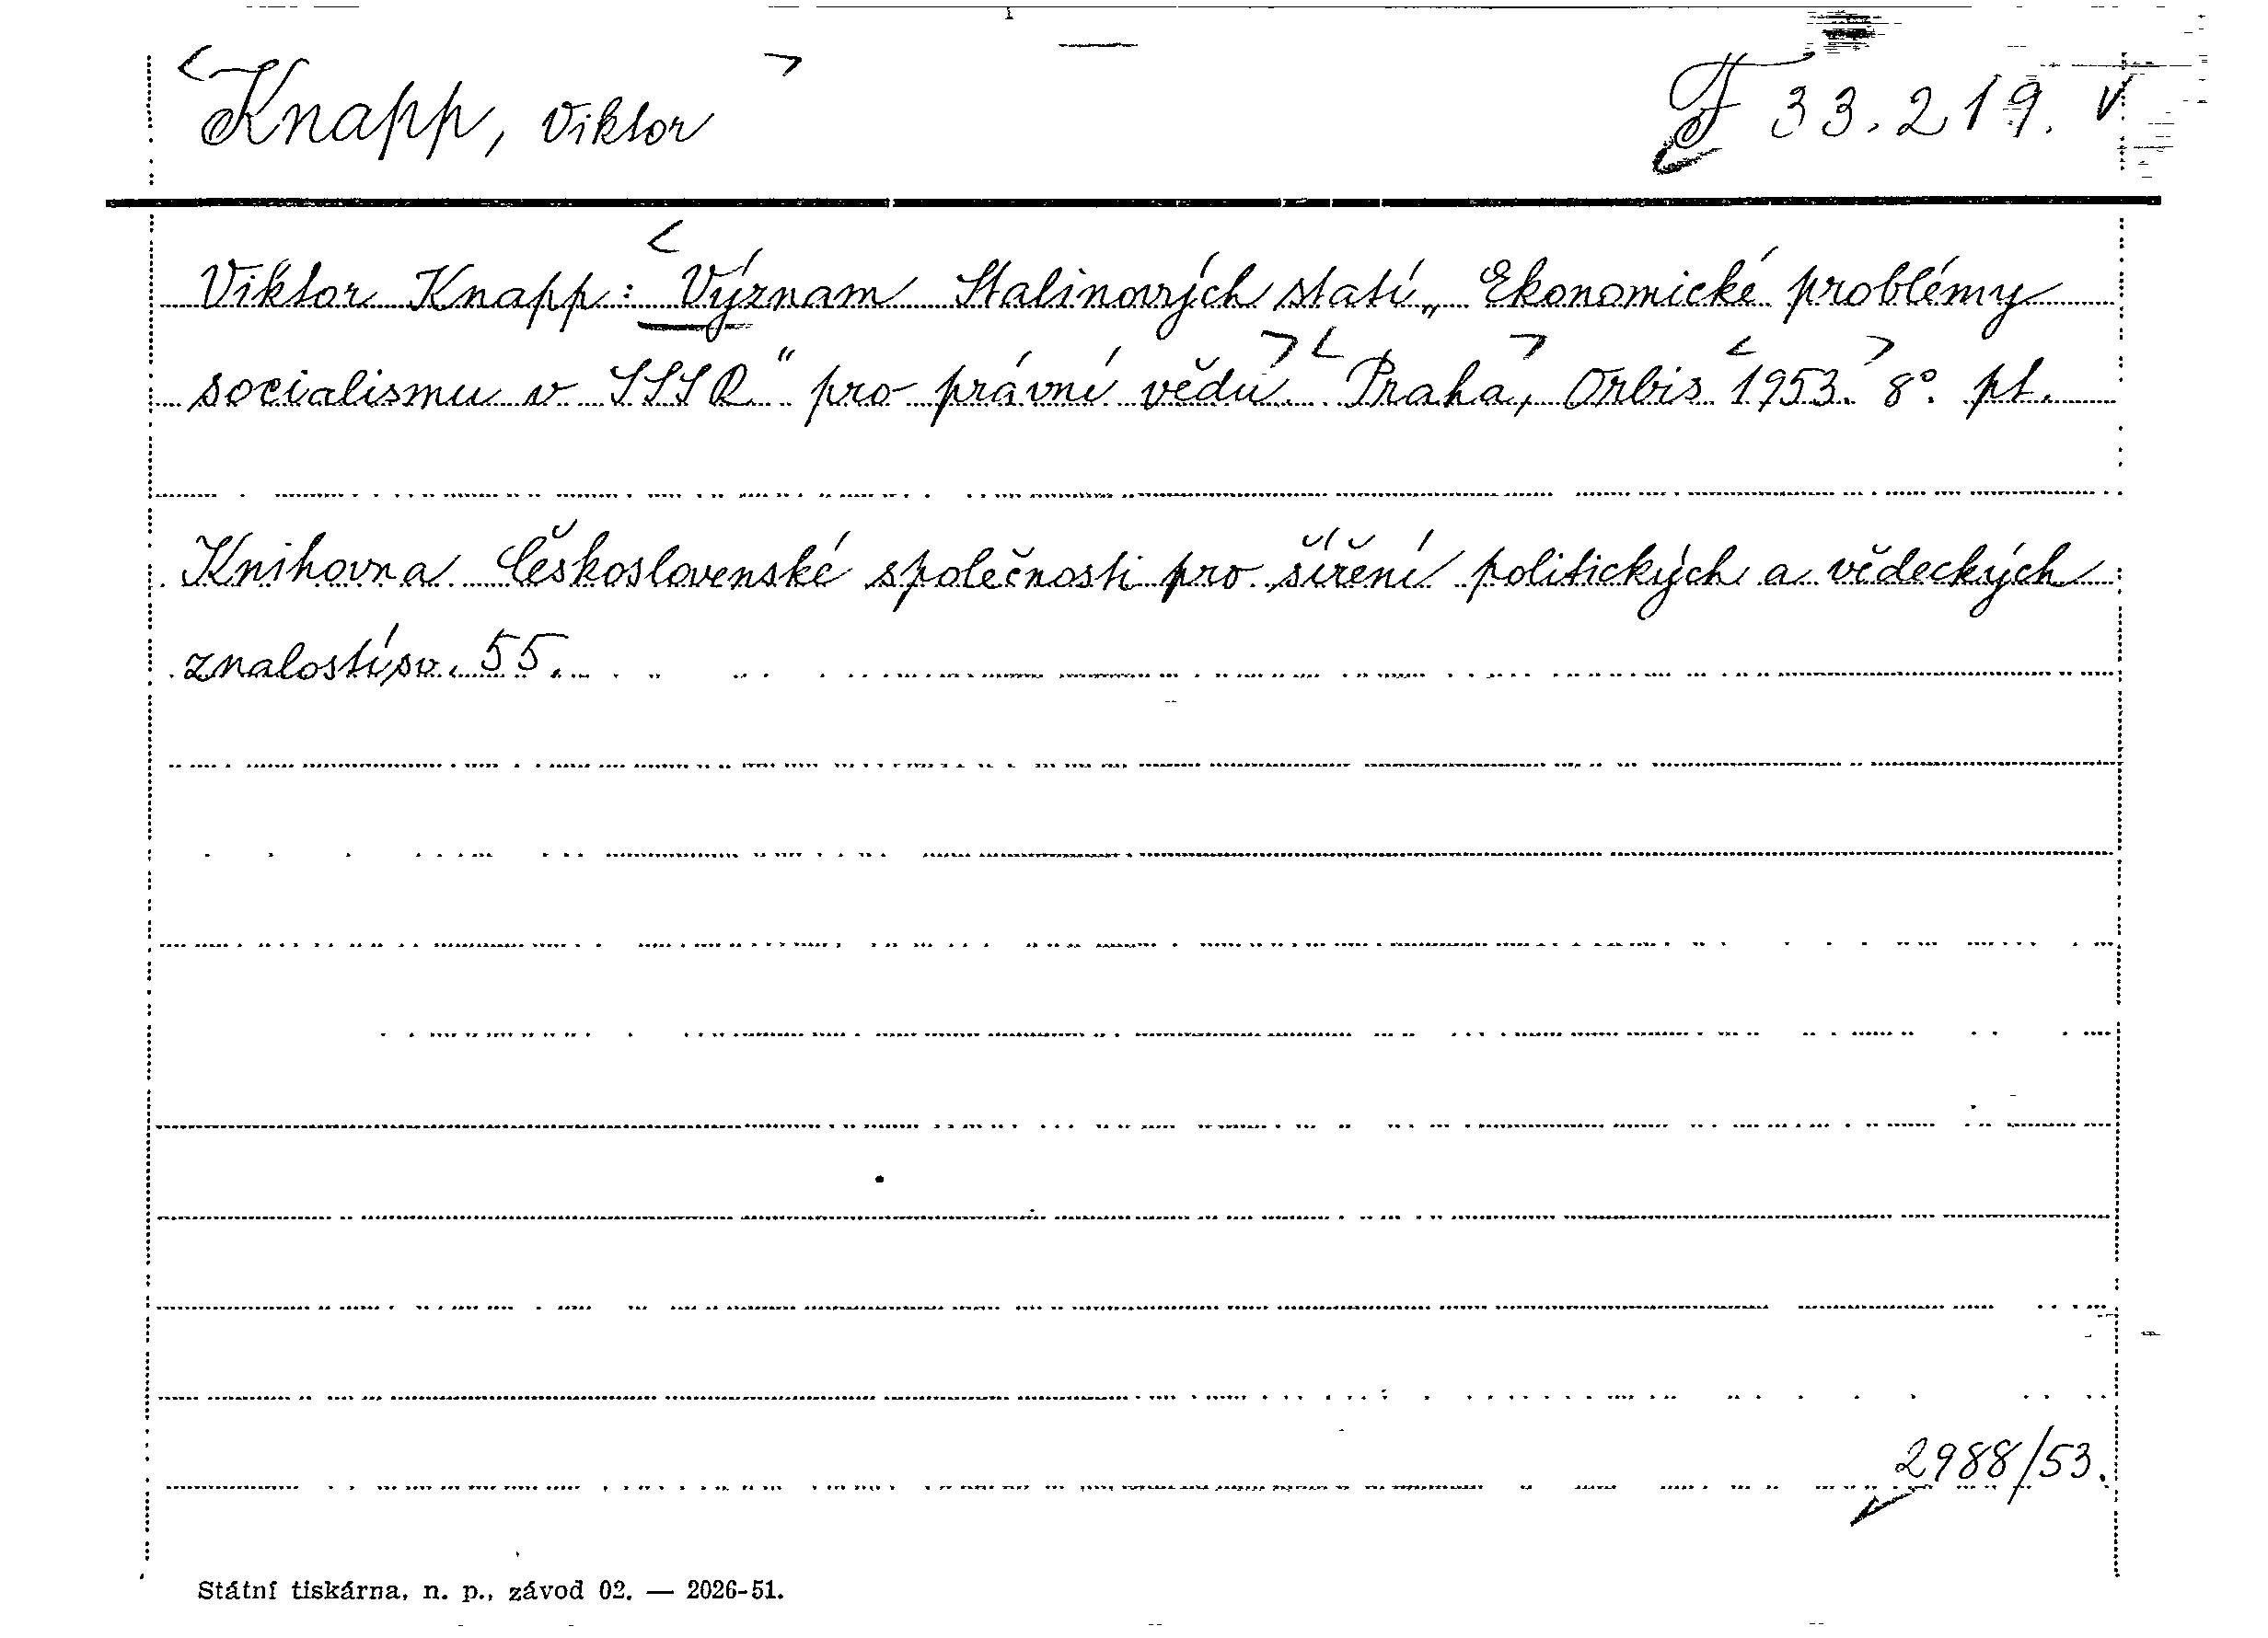 Knapp, Viktor
F 33.219.
Viktor Knapp: Význam Stalinových statí „Ekonomické problémy
socialismu v SSSR“ pro právní vědu. Praha, Orbis 1953. 8°. pt.
Knihovna Československé společnosti pro šíření politických a vědeckých
znalostí sv. 55.
2988/53.
Státní tiskárna, n. p., závod 02. — 2026-51.